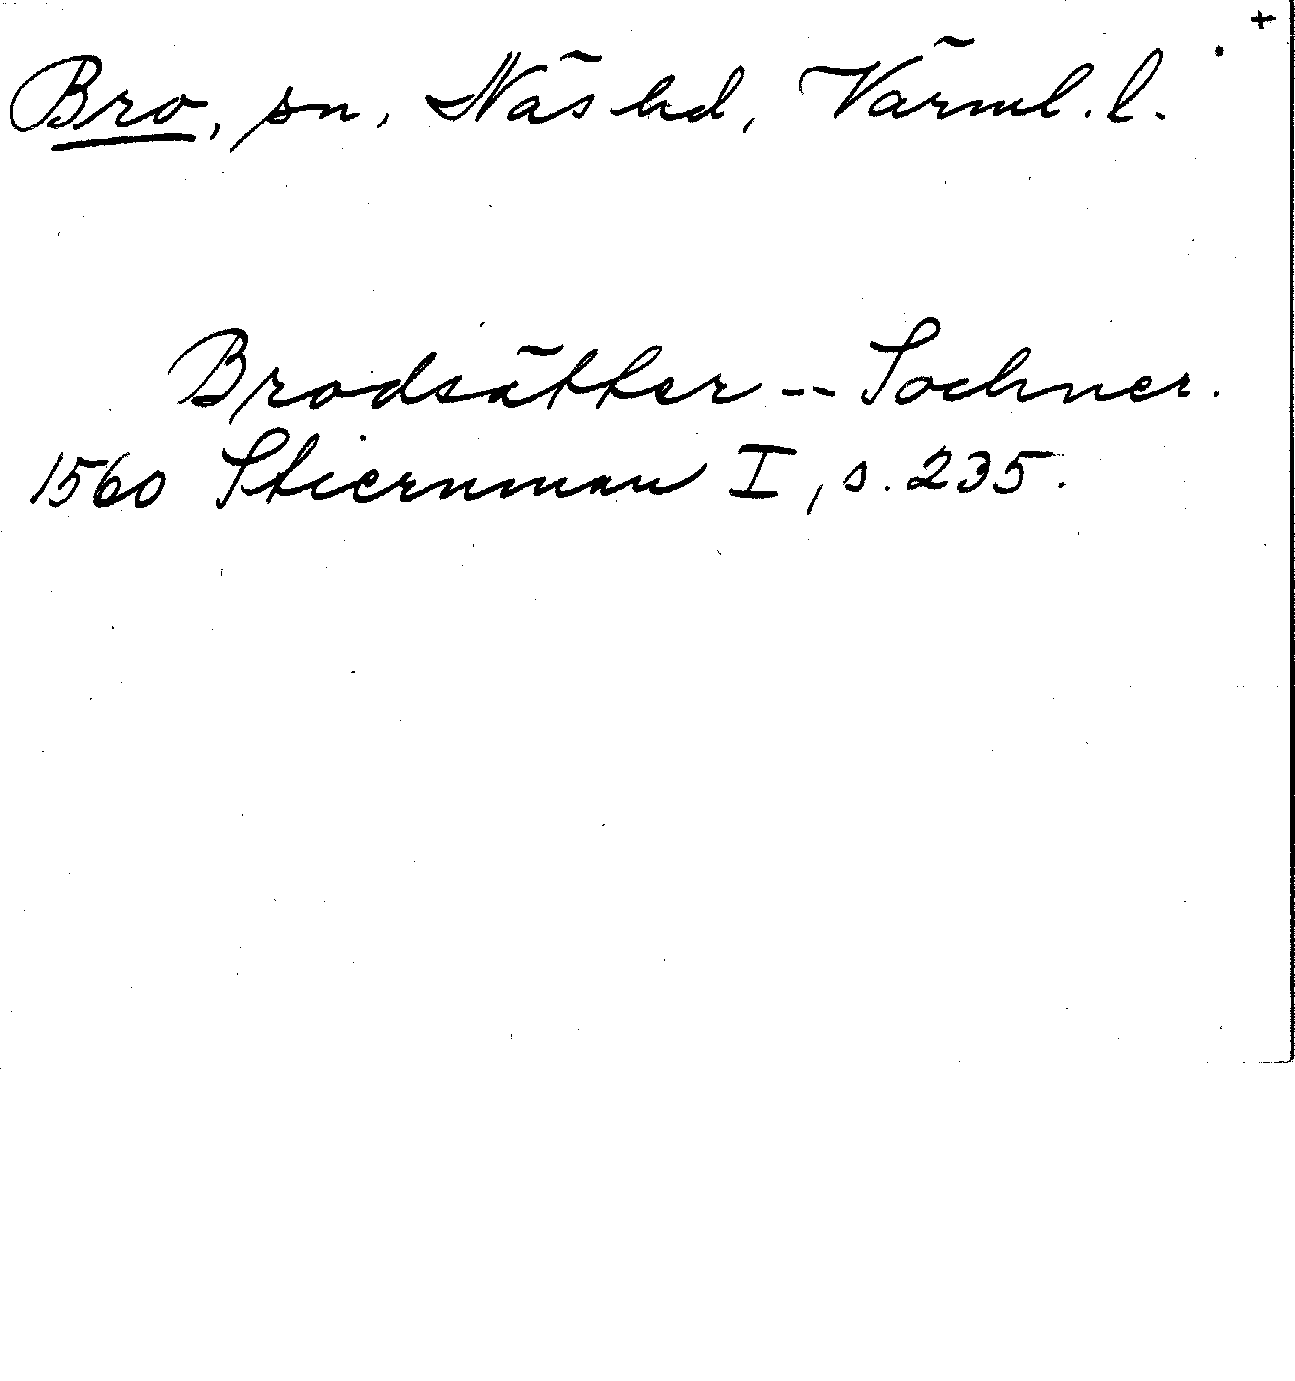 +
Bro, sn, Näs hd, Värml. l.
Brodsätter -- Sochner.
1560 Stiernman I, s. 235.